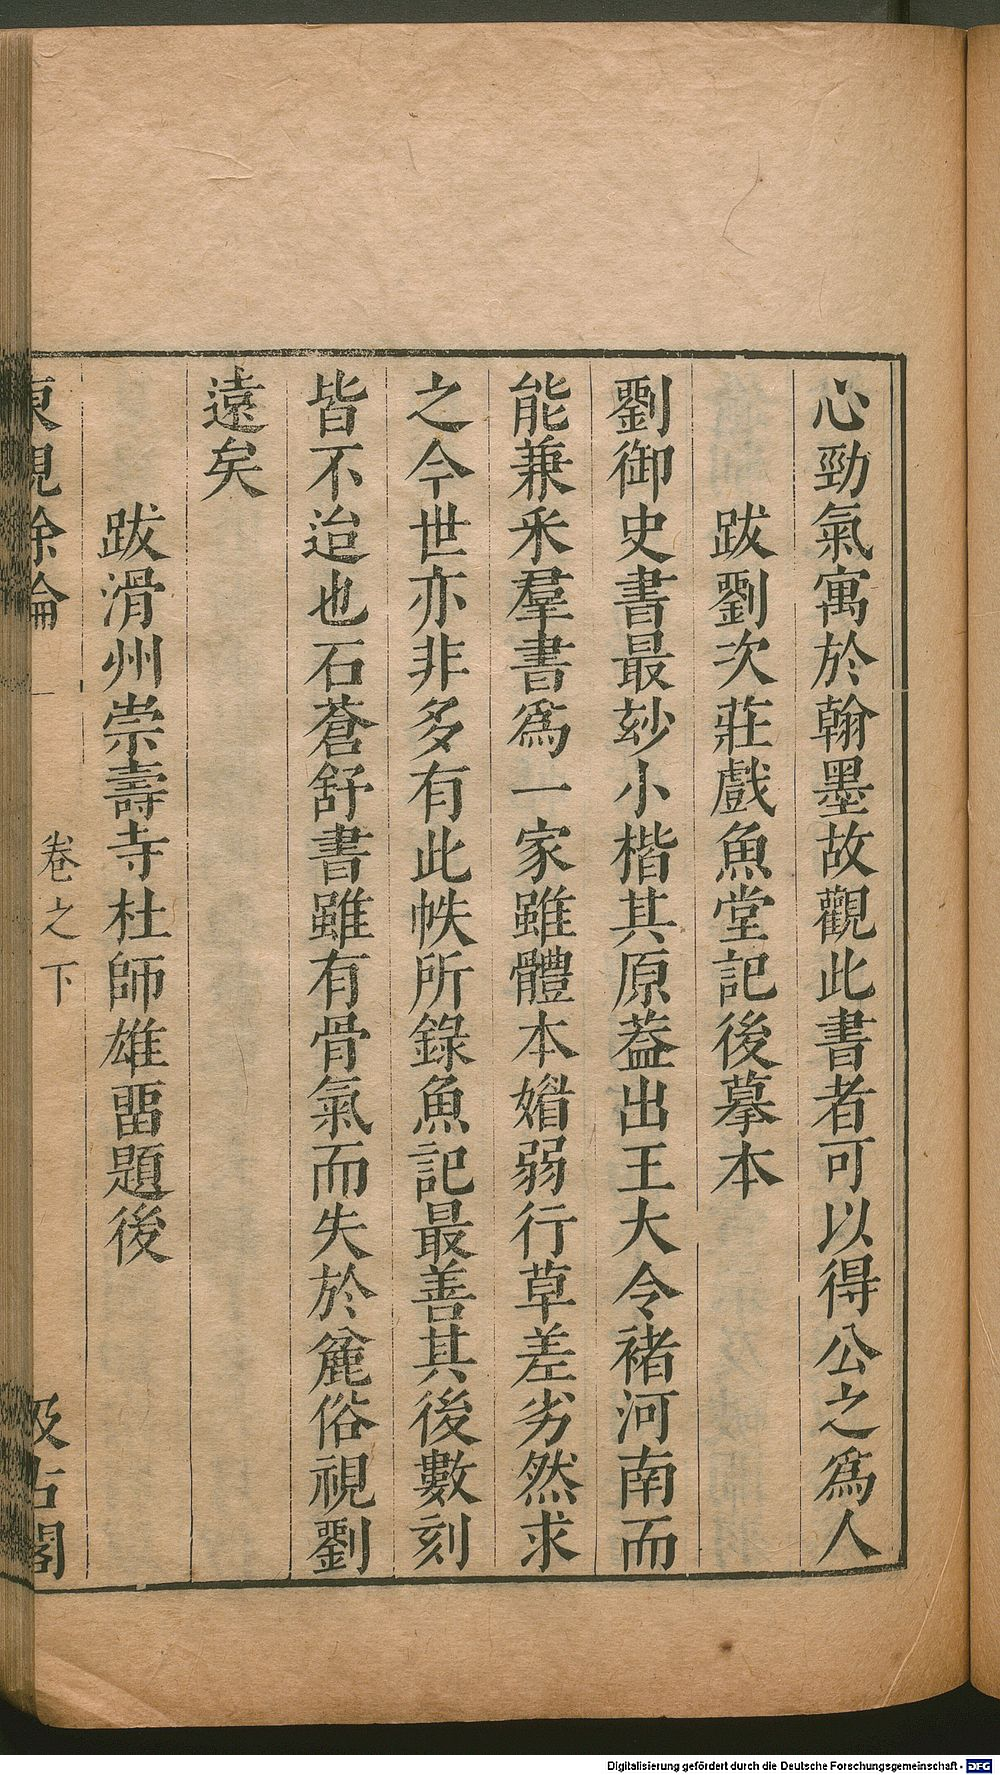 心勁氣寓於翰墨故觀此書者可以得公之爲人
跋劉次莊戲魚堂記後摹本
劉御史書最玅小楷其原葢出王大令褚河南而
能兼釆羣書爲一家雖體本媘弱行草差劣然求
之今世亦非多有此帙所錄魚記最善其後數刻
皆不迨也石蒼舒書雖有骨氣而失於麄俗視劉
遠矣
跋滑州崇壽寺杜師雄畱題後
東觀餘論 卷之下 汲古閣
Digitalisierung gefördert durch die Deutsche Forschungsgemeinschaft - DFG